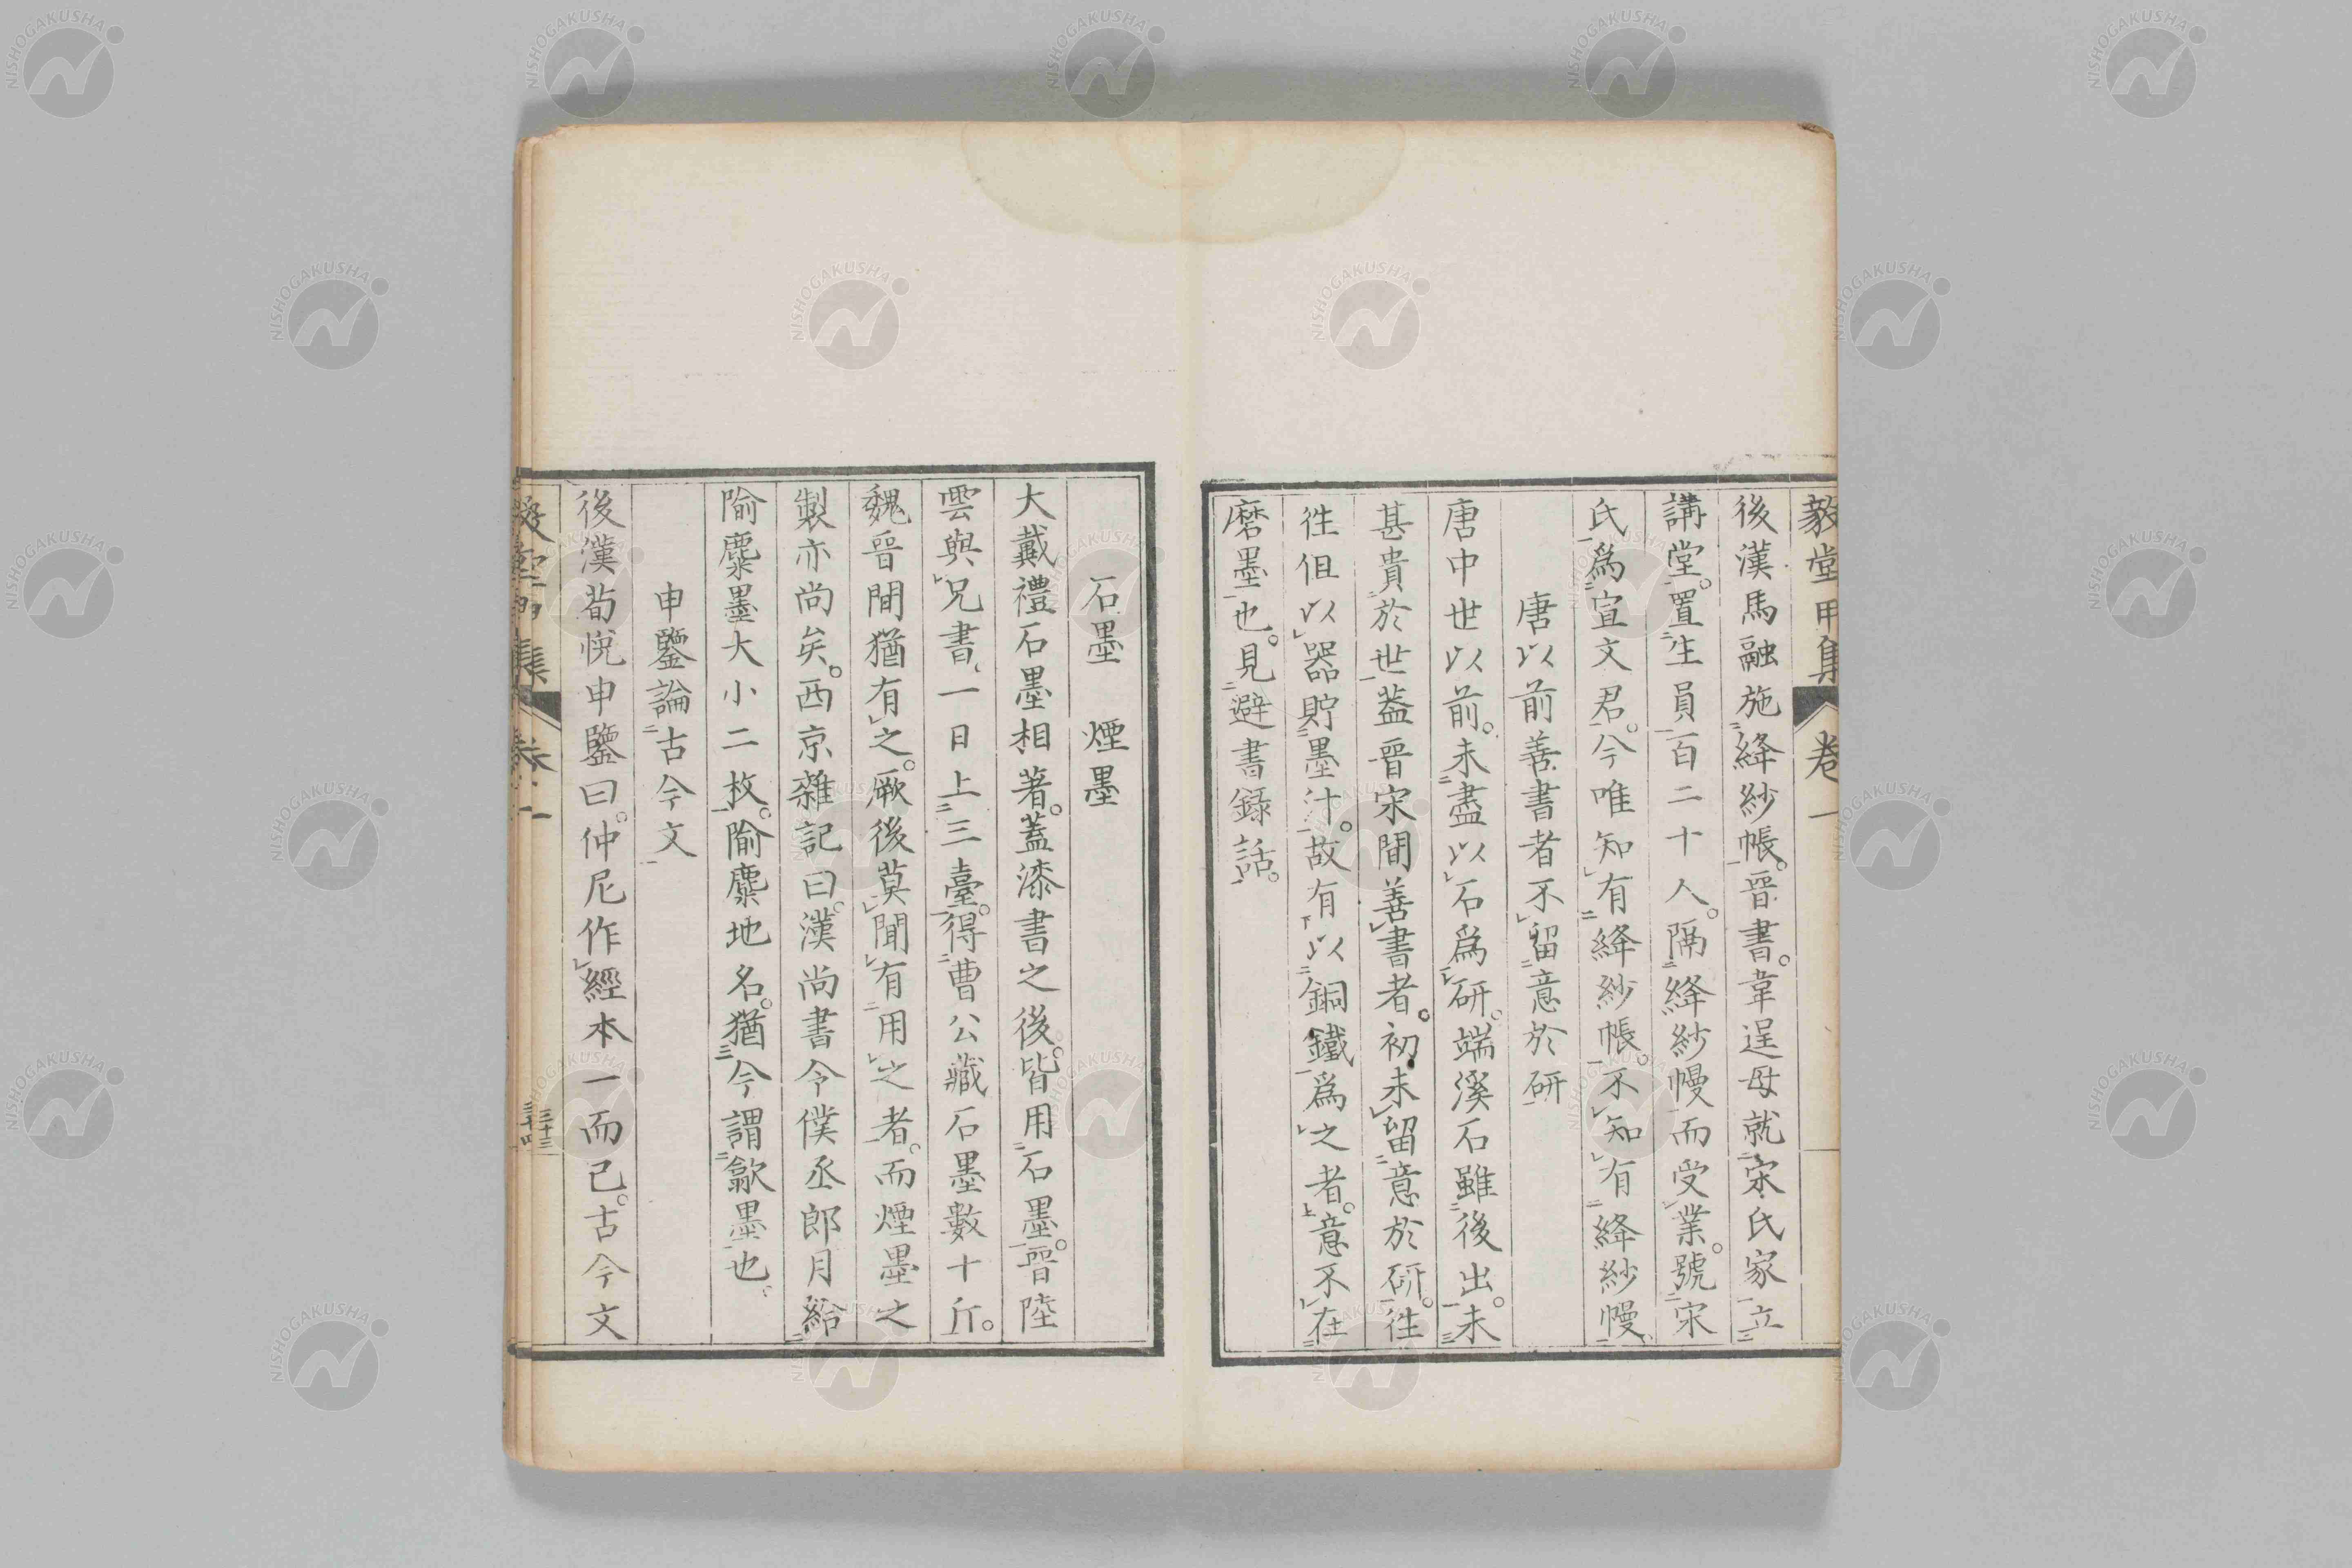 毅堂甲集 卷一
後漢馬融施絳紗帳。晉書。韋逞母就宋氏家立
講堂。置生員百二十人。隔絳紗幔而受業。號宋
氏爲宣文君。今唯知有絳紗帳。不知有絳紗幔
唐以前善書者不留意於研
唐中世以前。未盡以石爲研。端溪石雖後出。未
甚貴於世。葢晉宋間善書者。初未留意於研。徃
徃但以器貯墨汁。故有以銅鐵爲之者。意不在
磨墨也。見避書錄話。
石墨 煙墨
大戴禮石墨相著。蓋漆書之後。皆用石墨。晉陸
雲與兄書、一日上三臺。得曹公藏石墨數十斤。
魏晉間猶有之。厥後莫聞有用之者。而煙墨之
製亦尚矣。西京雜記曰。漢尚書令僕丞郎月給
隃麋墨大小二枚。隃麋地名。猶今謂歙墨也。
申鑒論古今文
後漢荀悅申鑒曰。仲尼作經本一而已。古今文
卷一